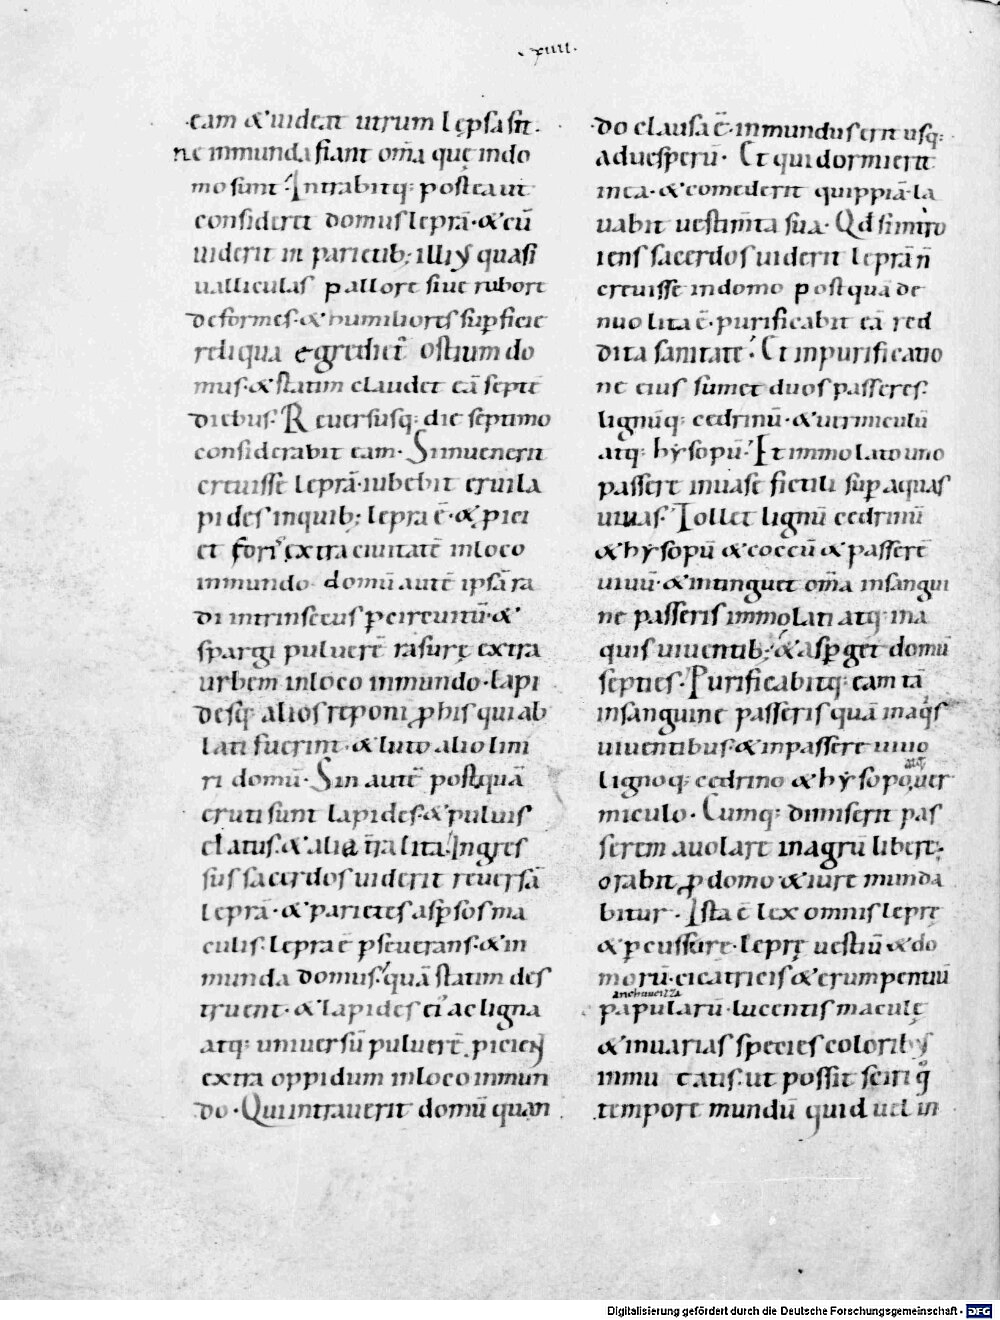 .xiiii.
eam & uiderit utrum leprosa sit.
ne inmunda fiant om̄a quę indo
mo sunt. Intrabitq; postea ut
consideret domus leprā. & cū
uiderit in parietib; illiꝰ quasi
ualliculas pallore siue rubore
deformes. & humiliores suꝑficie
reliqua egrediet᷒ ostium do
mus. & statim claudet eā septē
diebus. Reuersusq; die septimo
considerabit eam. Si inuenerit
creuisse leprā. iubebit erui la
pides inquib; lepra ē. & ꝓici
et foris extra ciuitatē inloco
inmundo domū autē ipsā ra
di intrinsecus ꝑcircuitū. &
spargi puluerē rasurę extra
urbem inloco inmundo. lapi
desq; alios reponi ꝓ his qui ab
lati fuerint. & luto alio lini
ri domū. Sin autē postquā
eruti sunt lapides. & puluis
elatus. & alia t̄ra lita. Ingres
sus sacerdos uiderit reuersā
leprā. & parietes asꝑsos ma
culis. lepra ē ꝑseuerans. & in
munda domus. quā statim des
truent. & lapides ei᷒ ac ligna
atq; uniuersū puluerē. ꝓicient
extra oppidum inloco inmun
do. Qui intrauerit domū quan
do clausa ē. inmundus erit usq;
ad uesperū. Et qui dormierit
in ea. & comederit quippiā. la
uabit uestim̄ta sua. Qd̄ si intro
iens sacerdos uiderit leprā n̄
creuisse indomo postquā de
nuo lita ē. purificabit eā red
dita sanitate. Et inpurificatio
ne eius sumet duos passeres.
lignūq; cedrinū. & uermiculū
atq; hẏsopū. Et immolato uno
passere inuase fictili suꝑ aquas
uiuas. Tollet lignū cedrinū
& hẏsopū & coccū & passerē
uiuū. & intinguet om̄a insangui
ne passeris immolati atq; ina
quis uiuentib;. & asꝑget domū
septies. Purificabitq; eam tā
insanguine passeris quā inaq̇s
uiuentibus. & inpassere uiuo
lignoq; cedrino & hẏsopo, atq; uer
miculo. Cumq; dimiserit pas
serem auolare inagrū libere.
orabit ꝓ domo & iure munda
bitur. Ista ē lex omnis leprę
& ꝑcussurę. leprę uestiū & do
morū. cicatricis & erumpentiū
anehaueizza
papularū. lucentis maculę
& inuarias species coloribꝰ
inmu tatis. ut possit sciri q̊
tempore mundū quid uel in
Digitalisierung gefördert durch die Deutsche Forschungsgemeinschaft - DFG